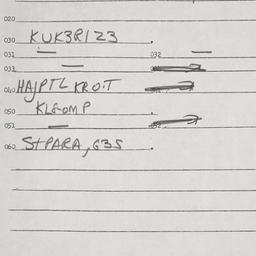 020
030 KUK3R123 .
031 032
033
040 HAJPTL KROT
050 KLG-OMP
051
060 StPARA, G3S .